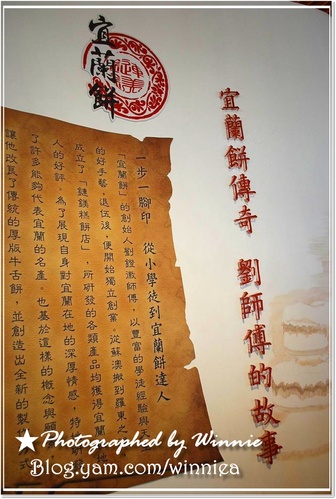 宜蘭餅
宜蘭餅傳奇 劉師傅的故事
一步一腳印 從小學徒到宜蘭餅達人
「宜蘭餅」的創始人劉鐙徽師傅，以豐富的學徒經驗與天
的好手藝，退伍後，便開始獨立創業。從蘇澳搬到羅東之
成立了「鏈鎂糕餅店」，所研發的各類產品均獲得宜蘭
人的好評。為了展現自身對宜蘭在地的深厚情感，特
了許多能夠代表宜蘭的名產，也基於這樣的概念與
讓他改良了傳統的厚版牛舌餅，並創造出全新的製
★ Photographed by Winnie
Blog.yam.com/winniea